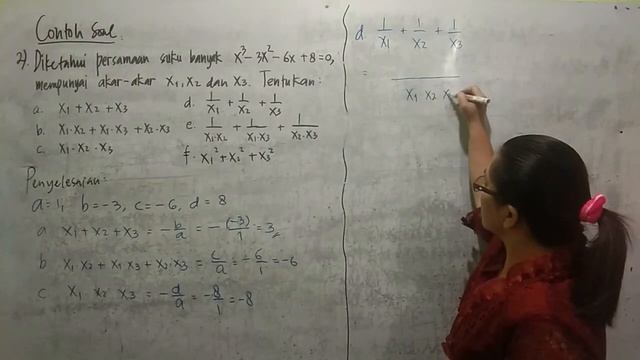 Contoh Soal.
2). Diketahui persamaan suku banyak x³ - 3x² - 6x + 8 = 0,
mempunyai akar-akar x₁, x₂ dan x₃. Tentukan:
a. x₁ + x₂ + x₃
b. x₁.x₂ + x₁.x₃ + x₂.x₃
c. x₁.x₂.x₃
d. 1/x₁ + 1/x₂ + 1/x₃
e. 1/x₁.x₂ + 1/x₁.x₃ + 1/x₂.x₃
f. x₁² + x₂² + x₃²
Penyelesaian:
a = 1, b = -3, c = -6, d = 8
a x₁ + x₂ + x₃ = -b/a = -(-3)/1 = 3
b x₁.x₂ + x₁.x₃ + x₂.x₃ = c/a = -6/1 = -6
c x₁.x₂.x₃ = -d/a = -8/1 = -8
d 1/x₁ + 1/x₂ + 1/x₃
=
x₁ x₂ x